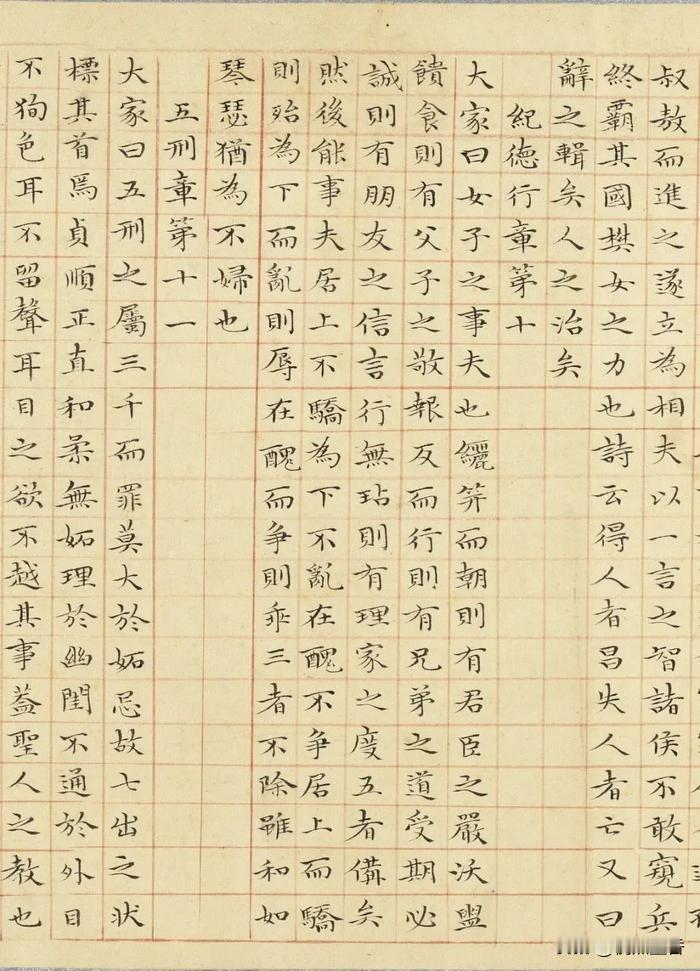 叔敖而進之遂立為相夫以一言之智諸侯不敢窺兵
終霸其國樊女之力也詩云得人者昌失人者亡又曰
辭之輯矣人之治矣
紀德行章第十
大家曰女子之事夫也纚筓而朝則有君臣之嚴沃盥
饋食則有父子之敬報反而行則有兄弟之道受期必
誠則有朋友之信言行無玷則有理家之度五者備矣
然後能事夫居上不驕為下不亂在醜不爭居上而驕
則殆為下而亂則辱在醜而爭則乖三者不除雖和如
琴瑟猶為不婦也
五刑章第十一
大家曰五刑之屬三千而罪莫大於妬忌故七出之狀
標其首焉貞順正直和柔無妬理於幽閨不通於外目
不狥色耳不留聲耳目之欲不越其事蓋聖人之教也